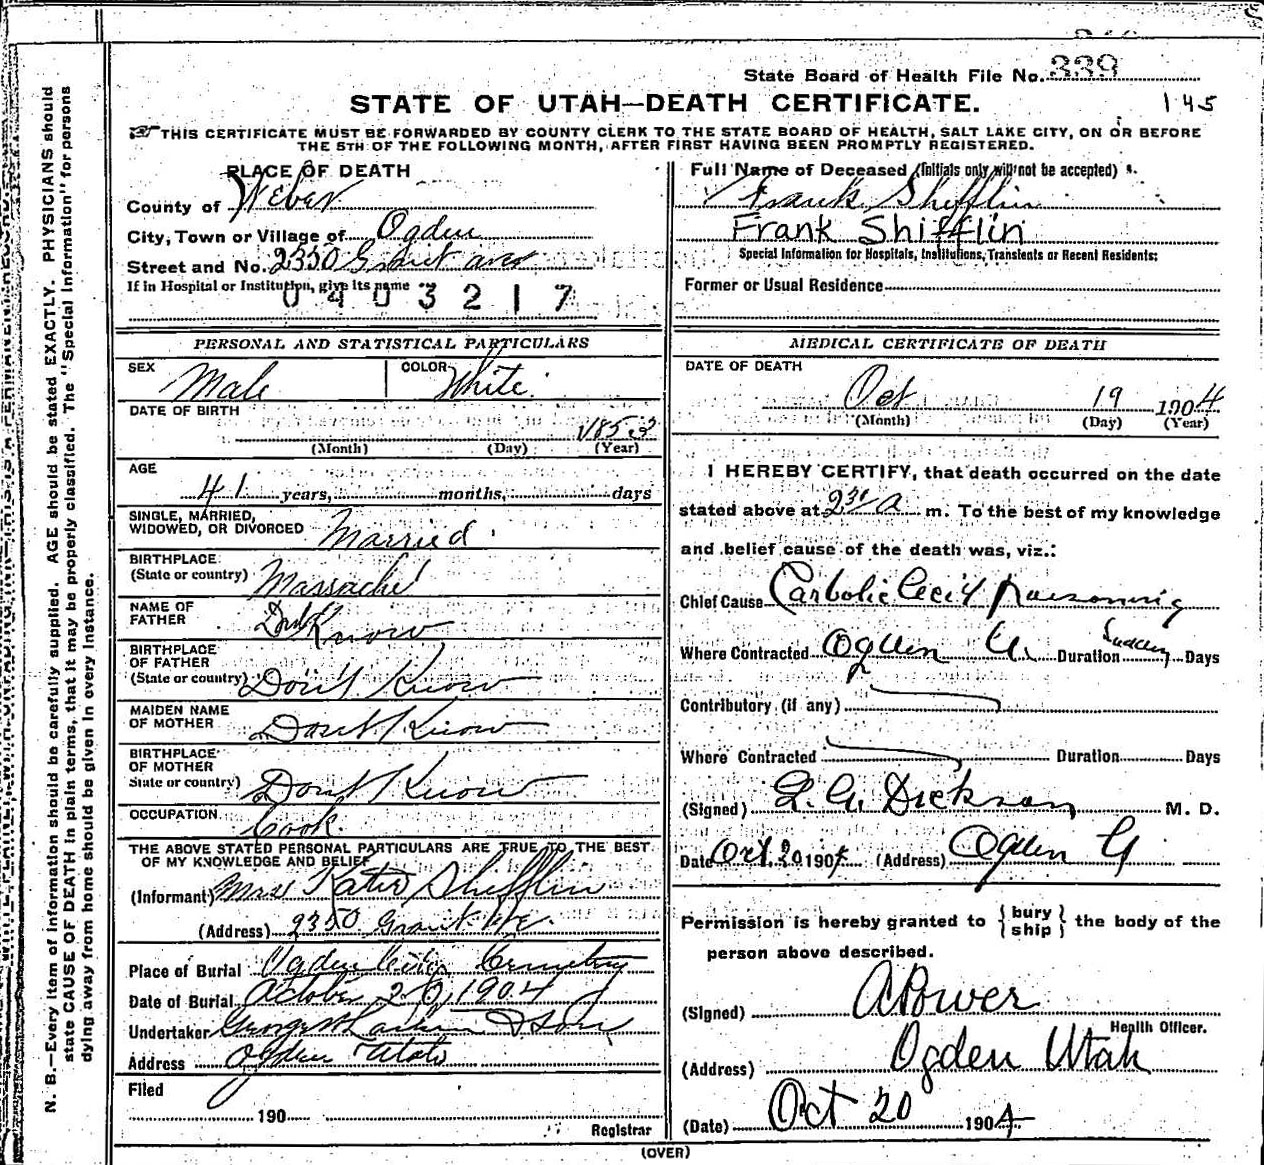 State Board of Health File No. 339
STATE OF UTAH—DEATH CERTIFICATE.
145
THIS CERTIFICATE MUST BE FORWARDED BY COUNTY CLERK TO THE STATE BOARD OF HEALTH, SALT LAKE CITY, ON OR BEFORE
THE 5TH OF THE FOLLOWING MONTH, AFTER FIRST HAVING BEEN PROMPTLY REGISTERED.
PLACE OF DEATH
County of Weber
City, Town or Village of Ogden
Street and No. 2350 Grant
If in Hospital or Institution, give its name
0403217
PERSONAL AND STATISTICAL PARTICULARS
SEX Male
COLOR White
DATE OF BIRTH
1853
(Month) (Day) (Year)
AGE
41 years, months, days
SINGLE, MARRIED,
WIDOWED, OR DIVORCED Married
BIRTHPLACE
(State or country)
NAME OF
FATHER Dont Know
BIRTHPLACE
OF FATHER
(State or country) Don't Know
MAIDEN NAME
OF MOTHER Dont Know
BIRTHPLACE
OF MOTHER
State or country) Dont Know
OCCUPATION
Cook.
THE ABOVE STATED PERSONAL PARTICULARS ARE TRUE TO THE BEST
OF MY KNOWLEDGE AND BELIEF
(Informant) Katie Shifflin
(Address) 2350 Grant Ave.
Place of Burial Ogden City Cemetery
Date of Burial October 20, 1904
Undertaker & Son
Address Ogden Utah
Filed
190
Registrar
Full Name of Deceased (Initials only will not be accepted)
Frank Shifflin
Frank Shifflin
Special Information for Hospitals, Institutions, Transients or Recent Residents:
Former or Usual Residence
MEDICAL CERTIFICATE OF DEATH
DATE OF DEATH
Oct 19 1904
(Month) (Day) (Year)
I HEREBY CERTIFY, that death occurred on the date
stated above at 2 30 a m. To the best of my knowledge
and belief cause of the death was, viz.:
Chief Cause Carbolic
Where Contracted Ogden U. Duration Sudden Days
Contributory (if any)
Where Contracted Duration Days
(Signed) Dickson M. D.
Date Oct. 20 1904 (Address) Ogden U
Permission is hereby granted to { bury ship } the body of the
person above described.
(Signed) A Power
Health Officer.
(Address) Ogden Utah
(Date) Oct 20 1904
(OVER)
N. B.—Every item of information should be carefully supplied. AGE should be stated EXACTLY. PHYSICIANS should
state CAUSE OF DEATH in plain terms, that it may be properly classified. The "Special Information" for persons
dying away from home should be given in every instance.